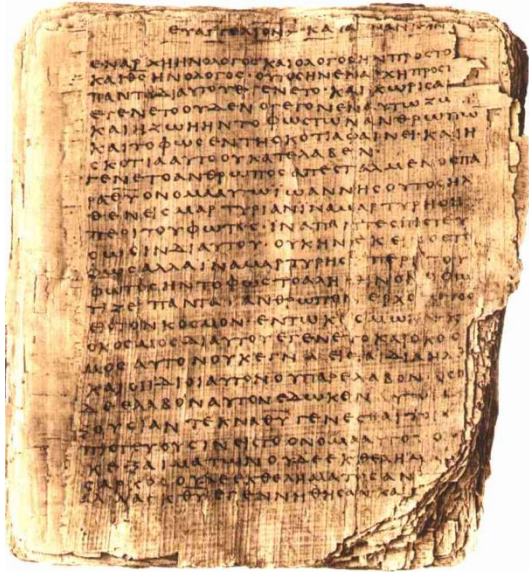 ΕΥΑΓΓΕΛΙΟΝ ΚΑΤΑ ΙΩΑΝΝΗΝ
ΕΝΑΡΧΗΗΝΟΛΟΓΟϹΚΑΙΟΛΟΓΟϹΗΝΠΡΟϹΤΟ
ΚΑΙΘ̅Ϲ̅ΗΝΟΛΟΓΟϹ·ΟΥΤΟϹΗΝΕΝΑΡΧΗΠΡΟϹΤ
ΠΑΝΤΑΔΙΑΥΤΟΥΕΓΕΝΕΤΟ·ΚΑΙΧΩΡΙϹΑ
ΕΓΕΝΕΤΟΟΥΔΕΝΟΓΕΓΟΝΕΝΕΝΑΥΤΩΖΩ
ΚΑΙΗΖΩΗΗΝΤΟΦΩϹΤΩΝΑΝΘΡΩΠΩ
ΚΑΙΤΟΦΩϹΕΝΤΗϹΚΟΤΙΑΦΑΙΝΕΙ·ΚΑΙΗ
ϹΚΟΤΙΑΑΥΤΟΟΥΚΑΤΕΛΑΒΕΝ·
ΓΕΝΕΤΟΑΝΘΡΩΠΟϹΑΠΕϹΤΑΛΜΕΝΟϹΠΑ
ΡΑΘ̅Υ̅ΟΝΟΜΑΑΥΤΩΙΩΑΝΝΗϹΟΥΤΟϹΗΛ
ΘΕΝΕΙϹΜΑΡΤΥΡΙΑΝΙΝΑΜΑΡΤΥΡΗϹΗ
ΠΕΡΙΤΟΥΦΩΤΟϹ·ΙΝΑΠΑΝΤΕϹΠΙϹΤΕΥ
ϹΩϹΙΝΔΙΑΥΤΟΥ·ΟΥΚΗΝΕΚΕΙΝΟϹΤΟ
ΦΩϹΑΛΛΑΙΝΑΜΑΡΤΥΡΗϹΗΠΕΡΙΤΟΥ
ΦΩΤΟϹΗΝΤΟΦΩϹΤΟΑΛΗΘΙΝΟΝΟΦΩ
ΤΙΖΕΙΠΑΝΤΑΑΝΘΡΩΠΟΝΕΡΧΟΜΕΝΟΝ
ΕΙϹΤΟΝΚΟϹΜΟΝ·ΕΝΤΩΚΟϹΜΩΗΝΚΑΙ
ΟΚΟϹΜΟϹΔΙΑΥΤΟΥΕΓΕΝΕΤΟΚΑΙΟΚΟϹ
ΜΟϹΑΥΤΟΝΟΥΚΕΓΝΩΕΙϹΤΑΙΔΙΑΗΛ
ΚΑΙΟΙΙΔΙΟΙΑΥΤΟΝΟΥΠΑΡΕΛΑΒΟΝ·ΟϹΟΙ
ΔΕΕΛΑΒΟΝΑΥΤΟΝΕΔΩΚΕΝΑΥΤΟΙϹΕ
ΞΟΥϹΙΑΝΤΕΚΝΑΘ̅Υ̅ΓΕΝΕϹΘΑΙΤΟΙϹ
ΠΙϹΤΕΥΟΥϹΙΝΕΙϹΤΟΟΝΟΜΑΑΥΤΟΥΟΙ
ΚΕΞΑΙΜΑΤΩΝΟΥΔΕΕΚΘΕΛΗΜΑ
ϹΑΡΚΟϹΟΥΔΕΕΚΘΕΛΗΜΑΤΟϹΑΝ
ΑΛΛΑΕΚΘ̅Υ̅ΕΓΕΝΝΗΘΗϹΑΝΚΑΙ